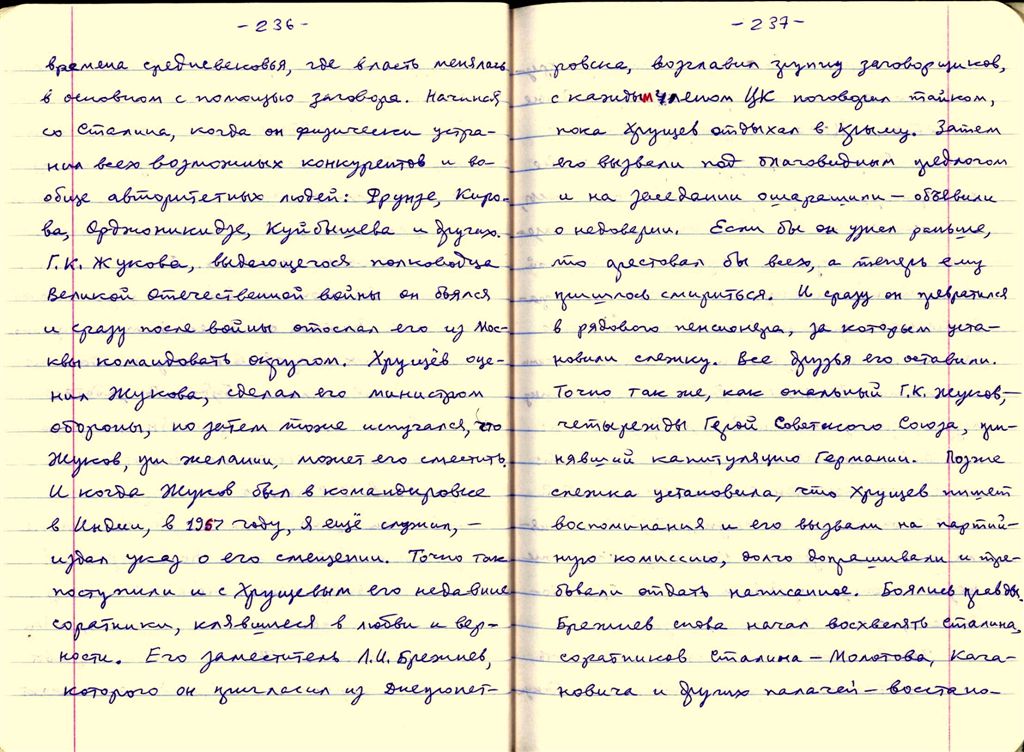 -236-
времена средневековья, где власть менялась
в основном с помощью заговора. Начиная
со Сталина, когда он физически устра-
нил всех возможных конкурентов и во-
обще авторитетных людей: Фрунзе, Киро-
ва, Орджоникидзе, Куйбышева и других.
Г.К. Жукова, выдающегося полководца
Великой Отечественной войны он боялся
и сразу после войны отослал его из Мос-
квы командовать округом. Хрущёв оце-
нил Жукова, сделал его министром
обороны, но затем тоже испугался, что
Жуков, при желании, может его сместить.
И когда Жуков был в командировке
в Индии, в 1957 году, я ещё служил, –
издал указ о его смещении. Точно так
поступили и с Хрущевым его недавние
соратники, клявшиеся в любви и вер-
ности. Его заместитель Л.И. Брежнев,
которого он пригласил из Днепропет-
-237-
ровска, возглавил группу заговорщиков,
с каждым членом ЦК поговорил тайком,
пока Хрущев отдыхал в Крыму. Затем
его вызвали под благовидным предлогом
и на заседании ошарашили – объявили
о недоверии. Если бы он узнал раньше,
то арестовал бы всех, а теперь ему
пришлось смириться. И сразу он превратился
в рядового пенсионера, за которым уста-
новили слежку. Все друзья его оставили.
Точно так же, как опальный Г.К. Жуков, –
четырежды Герой Советского Союза, при-
нявший капитуляцию Германии. Позже
слежка установила, что Хрущев пишет
воспоминания и его вызвали на партий-
ную комиссию, долго допрашивали и тре-
бовали отдать написанное. Боялись правды.
Брежнев снова начал восхвалять Сталина,
соратников Сталина – Молотова, Кага-
новича и других палачей – восстано-